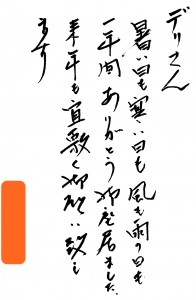 デリさん
暑い日も寒い日も風も雨の日も
一年間ありがとう御座居ました。
来年も宜敷く御願い致し
ます